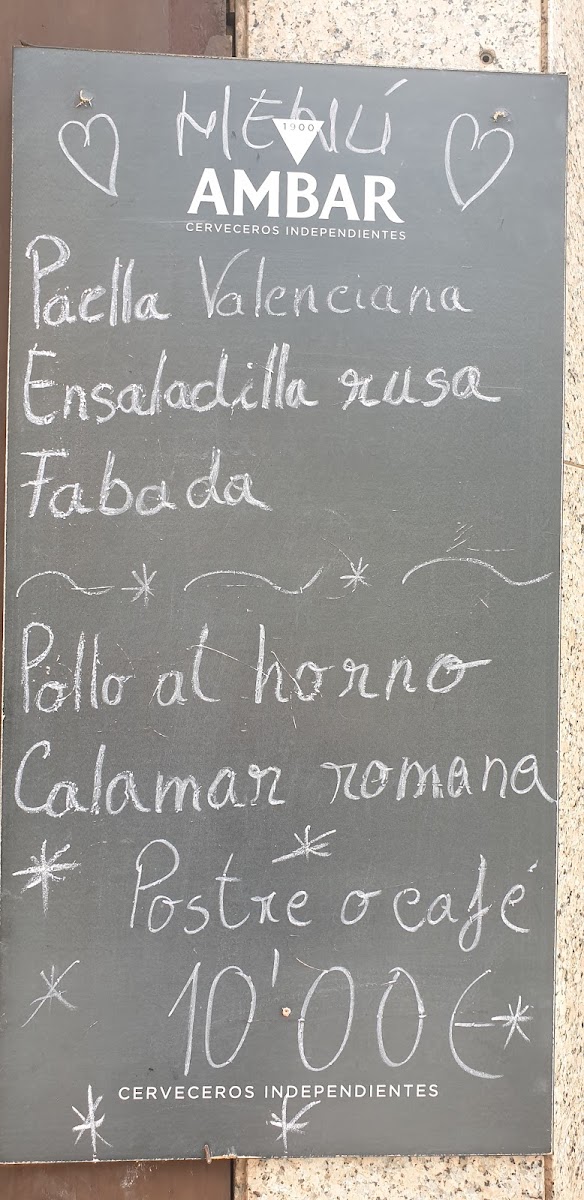 MENÚ
1900
AMBAR
CERVECEROS INDEPENDIENTES
Paella Valenciana
Ensaladilla rusa
Fabada
Pollo al horno
Calamar romana
Postre o café
10'00€
CERVECEROS INDEPENDIENTES